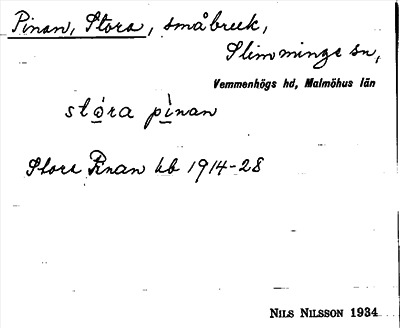 Pinan, Stora, småbruk,
Slimminge sn,
Vemmenhögs hd, Malmöhus län
stò̱ra pì̱nan
Stora Pinan kb 1914-28
NILS NILSSON 1934